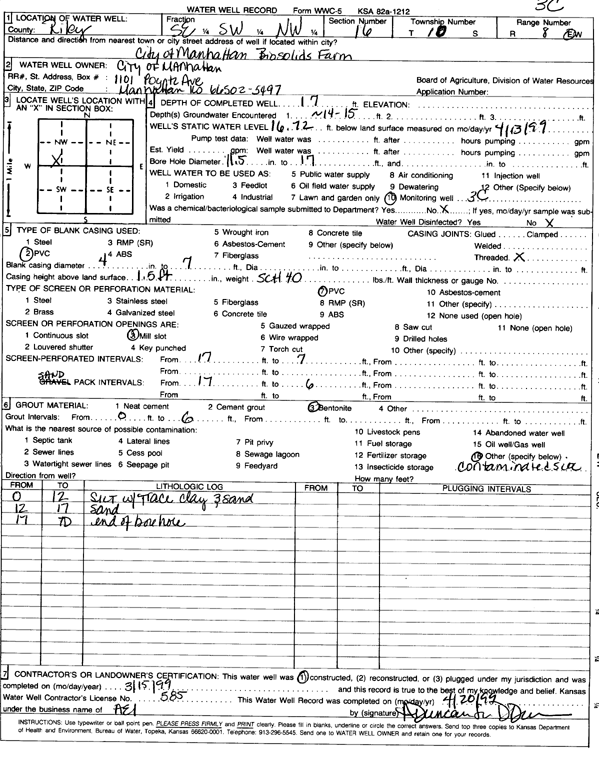 3C
WATER WELL RECORD Form WWC-5 KSA 82a-1212
1 LOCATION OF WATER WELL: Fraction Section Number Township Number Range Number
County: Riley SE ¼ SW ¼ NW ¼ 16 T 10 S R 8 E/W
Distance and direction from nearest town or city street address of well if located within city?
City of Manhattan Biosolids Farm
2 WATER WELL OWNER: City of Manhattan
RR#, St. Address, Box # : 1101 Poyntz Ave Board of Agriculture, Division of Water Resources
City, State, ZIP Code : Manhattan KS 66502-5497 Application Number:
3 LOCATE WELL'S LOCATION WITH AN "X" IN SECTION BOX:
N
NW NE
W X E
SW SE
S
1 Mile
4 DEPTH OF COMPLETED WELL 17 ft. ELEVATION:
Depth(s) Groundwater Encountered 1. ~14-15 ft. 2. ft. 3. ft.
WELL'S STATIC WATER LEVEL 16.72 ft. below land surface measured on mo/day/yr 4/13/99
Pump test data: Well water was ft. after hours pumping gpm
Est. Yield gpm: Well water was ft. after hours pumping gpm
Bore Hole Diameter 11.5 in. to 17 ft., and in. to ft.
WELL WATER TO BE USED AS: 5 Public water supply 8 Air conditioning 11 Injection well
1 Domestic 3 Feedlot 6 Oil field water supply 9 Dewatering 12 Other (Specify below)
2 Irrigation 4 Industrial 7 Lawn and garden only 10 Monitoring well 3C
Was a chemical/bacteriological sample submitted to Department? Yes No X ; If yes, mo/day/yr sample was sub-
mitted Water Well Disinfected? Yes No X
5 TYPE OF BLANK CASING USED: 5 Wrought iron 8 Concrete tile CASING JOINTS: Glued Clamped
1 Steel 3 RMP (SR) 6 Asbestos-Cement 9 Other (specify below) Welded
2 PVC 4 ABS 7 Fiberglass Threaded X
Blank casing diameter 4 in. to 7 ft., Dia in. to ft., Dia in. to ft.
Casing height above land surface 1.5 ft in., weight SCH 40 lbs./ft. Wall thickness or gauge No.
TYPE OF SCREEN OR PERFORATION MATERIAL: 7 PVC 10 Asbestos-cement
1 Steel 3 Stainless steel 5 Fiberglass 8 RMP (SR) 11 Other (specify)
2 Brass 4 Galvanized steel 6 Concrete tile 9 ABS 12 None used (open hole)
SCREEN OR PERFORATION OPENINGS ARE: 5 Gauzed wrapped 8 Saw cut 11 None (open hole)
1 Continuous slot 3 Mill slot 6 Wire wrapped 9 Drilled holes
2 Louvered shutter 4 Key punched 7 Torch cut 10 Other (specify)
SCREEN-PERFORATED INTERVALS: From 17 ft. to 7 ft., From ft. to ft.
From ft. to ft., From ft. to ft.
SAND
GRAVEL PACK INTERVALS: From 17 ft. to 6 ft., From ft. to ft.
From ft. to ft., From ft. to ft.
6 GROUT MATERIAL: 1 Neat cement 2 Cement grout 3 Bentonite 4 Other
Grout Intervals: From 0 ft. to 6 ft., From ft. to ft., From ft. to ft.
What is the nearest source of possible contamination: 10 Livestock pens 14 Abandoned water well
1 Septic tank 4 Lateral lines 7 Pit privy 11 Fuel storage 15 Oil well/Gas well
2 Sewer lines 5 Cess pool 8 Sewage lagoon 12 Fertilizer storage 16 Other (specify below)
3 Watertight sewer lines 6 Seepage pit 9 Feedyard 13 Insecticide storage contaminated site
Direction from well? How many feet?
FROM TO LITHOLOGIC LOG FROM TO PLUGGING INTERVALS
0 12 SILT w/Trace clay & sand
12 17 sand
17 TD end of borehole
7 CONTRACTOR'S OR LANDOWNER'S CERTIFICATION: This water well was (1) constructed, (2) reconstructed, or (3) plugged under my jurisdiction and was
completed on (mo/day/year) 3/15/99 and this record is true to the best of my knowledge and belief. Kansas
Water Well Contractor's License No. 585 This Water Well Record was completed on (mo/day/yr) 4/20/99
under the business name of AEI by (signature)
INSTRUCTIONS: Use typewriter or ball point pen. PLEASE PRESS FIRMLY and PRINT clearly. Please fill in blanks, underline or circle the correct answers. Send top three copies to Kansas Department
of Health and Environment, Bureau of Water, Topeka, Kansas 66620-0001. Telephone: 913-296-5545. Send one to WATER WELL OWNER and retain one for your records.